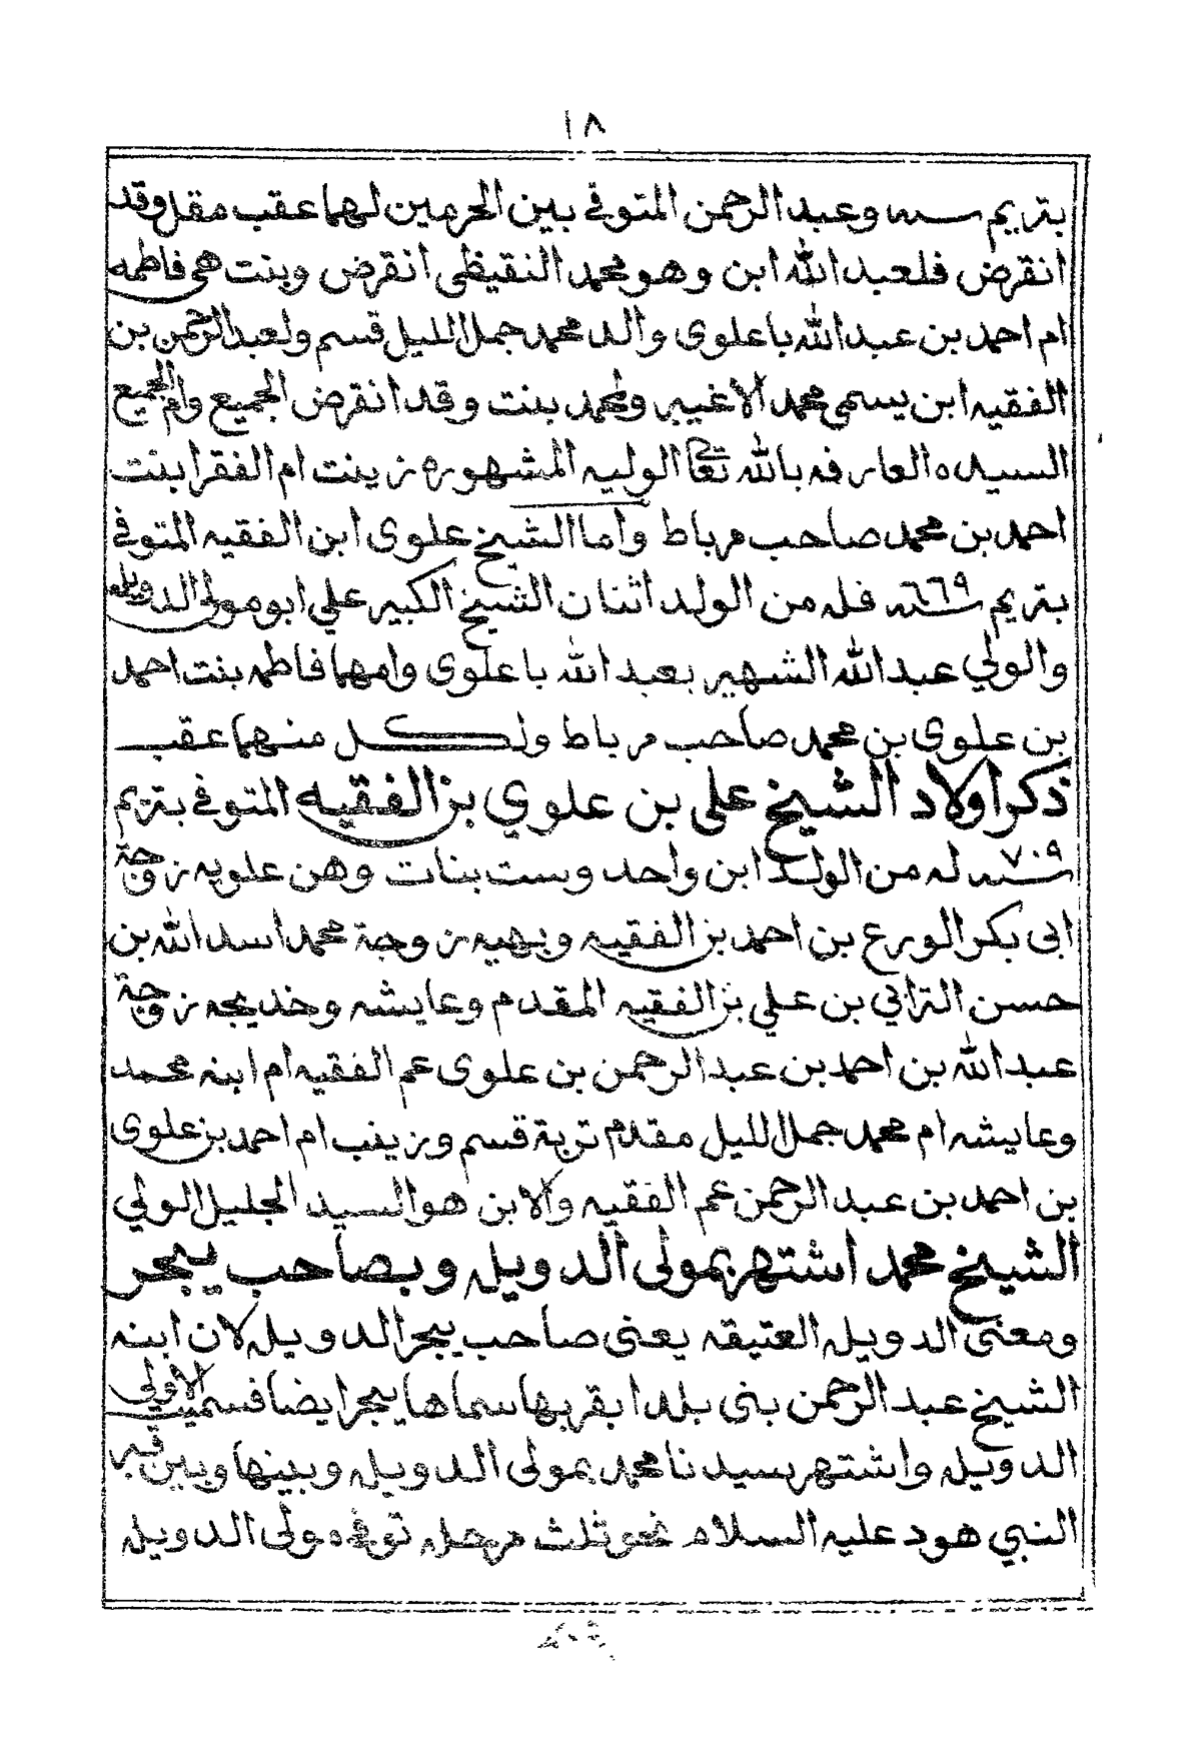 ١٨
بتريم سنه وعبد الرحمن المتوفي بين الحرمين لهما عقب مقل وقد
انقرض فلعبد الله ابن وهو محمد النقيظى انقرض وبنت هى فاطمه
ام احمد بن عبد الله باعلوى والد محمد جمل الليل قسم ولعبد الرحمن بن
الفقيه ابن يسمى محمد الاغيبر ولمحمد بنت وقد انقرض الجميع وام الجميع
السيده العارفه بالله تعا الوليه المشهوره زينت ام الفقرا بنت
احمد بن محمد صاحب مرباط واما الشيخ علوى ابن الفقيه المتوفي
بتريم سنه ٦٦٩ فله من الولد اثنان الشيخ الكبير علي ابو مولى الدويله
والولي عبد الله الشهير بعبد الله باعلوى وامهما فاطمه بنت احمد
بن علوى بن محمد صاحب مرباط ولكل منهما عقب
ذكر اولاد الشيخ على بن علوي بن الفقيه المتوفي بتريم
سنه ٧٠٩ له من الولد ابن واحد وست بنات وهن علويه زوجة
ابى بكر الورع بن احمد بن الفقيه وبهيه زوجة محمد اسد الله بن
حسن الترابي بن علي بن الفقيه المقدم وعايشه وخديجه زوجة
عبد الله بن احمد بن عبد الرحمن بن علوى عم الفقيه ام ابنه محمد
وعايشه ام محمد جمل الليل مقدم تربة قسم وزينب ام احمد بن علوى
بن احمد بن عبد الرحمن عم الفقيه والابن هو السيد الجليل الولي
الشيخ محمد اشتهر بمولى الدويله وبصاحب يبحر
ومعنى الدويله العتيقه يعنى صاحب يبحر الدويله لان ابنه
الشيخ عبد الرحمن بنى بلدا بقربها سماها يبحر ايضا فسميت الاولى
الدويله واشتهر سيدنا محمد بمولى الدويله وبينها وبين قبر
النبي هود عليه السلام نحو ثلث مرحله توفي مولى الدويله